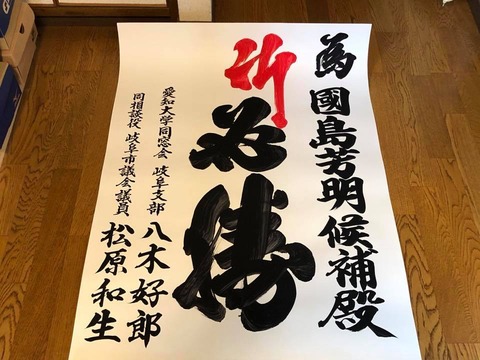 為國島芳明候補殿
祈必勝
愛知大学同窓会 岐阜支部 八木好郎
同相談役 岐阜市議会議員 松原和生